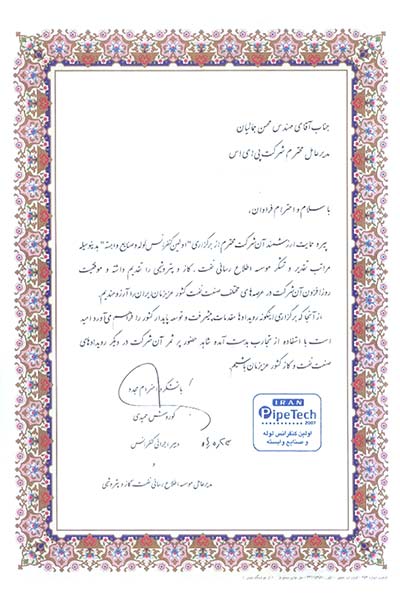 جناب آقای مهندس محسن جمالیان
مدیرعامل محترم شرکت پی دی اس
با سلام و احترام فراوان،
پیرو حمایت ارزشمند آن شرکت محترم از برگزاری "اولین کنفرانس لوله و صنایع وابسته" بدینوسیله
مراتب تقدیر و تشکر موسسه اطلاع رسانی نفت، گاز و پتروشیمی را تقدیم داشته و موفقیت
روزافزون آن شرکت در عرصه های مختلف صنعت نفت کشور عزیزمان ایران را آرزومندیم.
از آنجا که برگزاری اینگونه رویدادها مقدمات پیشرفت و توسعه پایدار کشور را فراهم می آورد امید
است با استفاده از تجارب بدست آمده شاهد حضور پر ثمر آن شرکت در دیگر رویدادهای
صنعت نفت و گاز کشور عزیزمان باشیم.
با تشکر و احترام مجدد
کورش حمیدی
دبیر اجرائی کنفرانس
و
مدیرعامل موسسه اطلاع رسانی نفت، گاز و پتروشیمی
IRAN
PipeTech
2007
اولین کنفرانس لوله
و صنایع وابسته